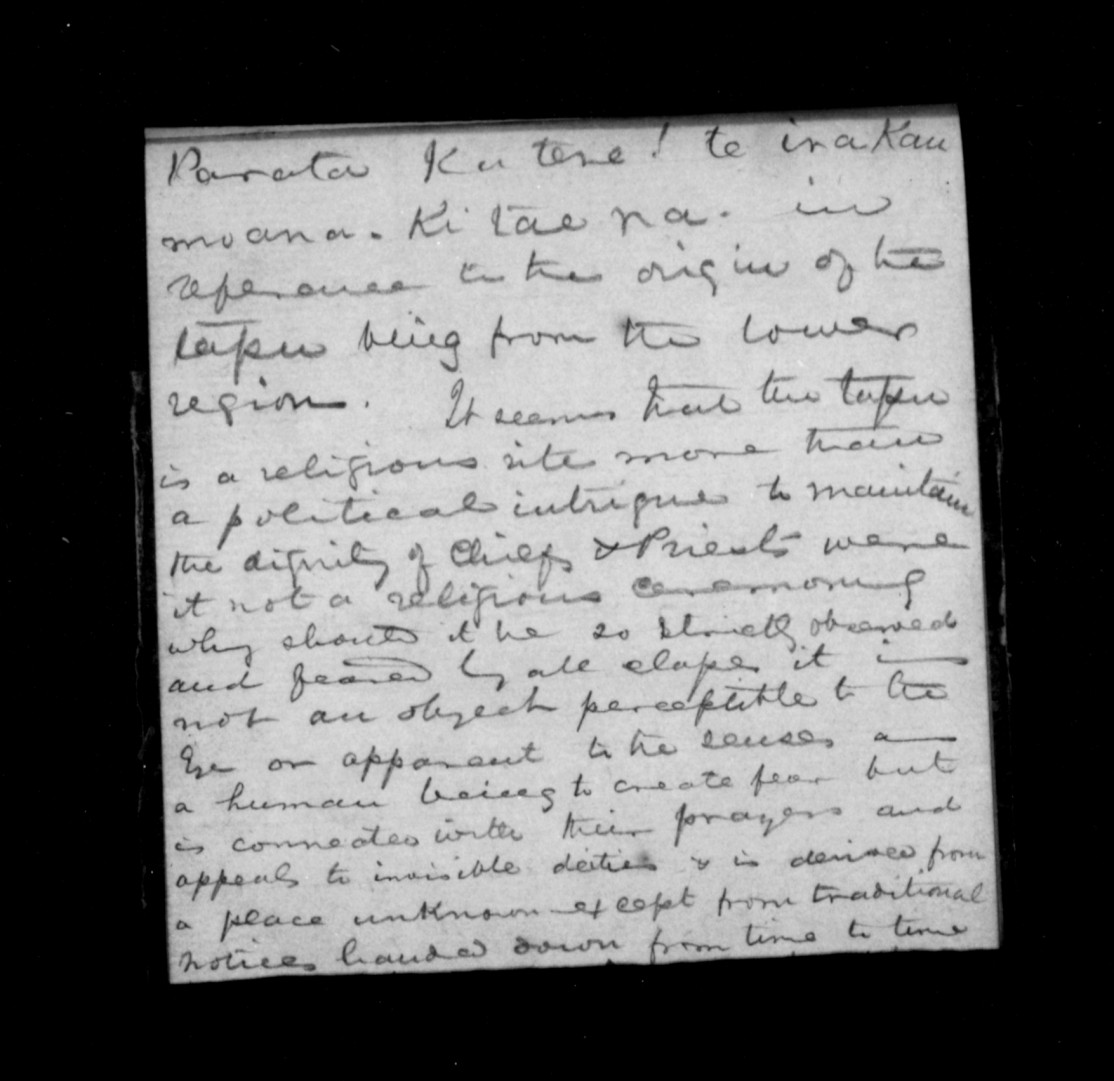 Parata Ku tere! te ira Kau
moana. Ki tae na. in
reference to the origin of the
tapu being from the lower
region. It seems that the tapu
is a religious rite more than
a political intrigue to maintain
the dignity of Chiefs & Priests were
it not a religious ceremony
why should it be so strictly observed
and feared by all clases it is
not an object perceptible to the
Eye or apparent to the senses as
a human being to create fear but
is connected with their prayers and
appeals to invisible deities & is derived from
a place unknown except from traditional
notices handed down from time to time